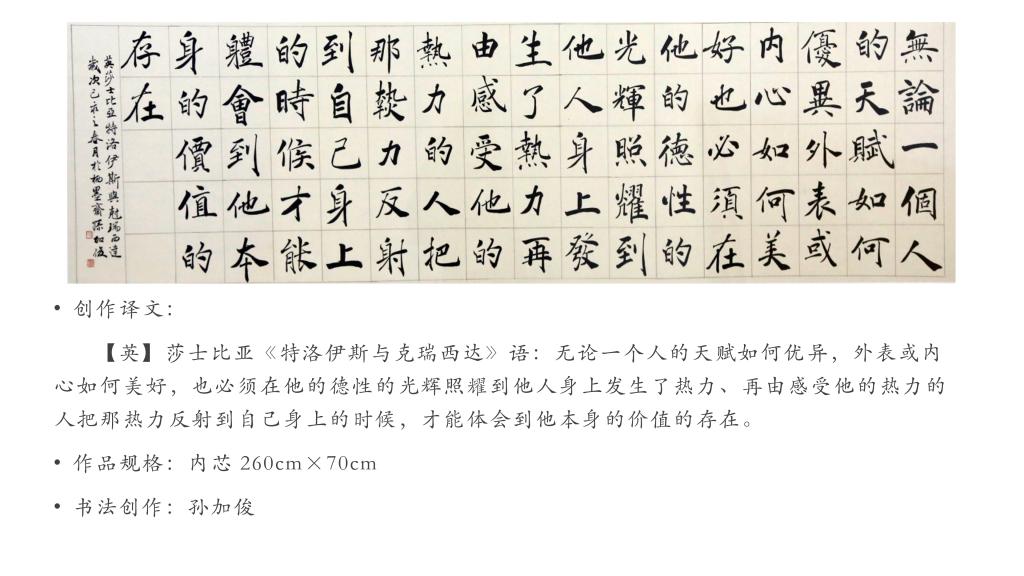 無論一個人
的天賦如何
優異外表或
内心如何美
好也必須在
他的德性的
光輝照耀到
他人身上發
生了熱力再
由感受他的
熱力的人把
那熱力反射
到自己身上
的時候才能
體會到他本
身的價值的
存在
英莎士比亞特洛伊斯與尅瑞西達
歲次己亥之春月於栖墨齋孫加俊
• 创作译文：
【英】莎士比亚《特洛伊斯与克瑞西达》语：无论一个人的天赋如何优异，外表或内
心如何美好，也必须在他的德性的光辉照耀到他人身上发生了热力、再由感受他的热力的
人把那热力反射到自己身上的时候，才能体会到他本身的价值的存在。
• 作品规格：内芯 260cm×70cm
• 书法创作：孙加俊